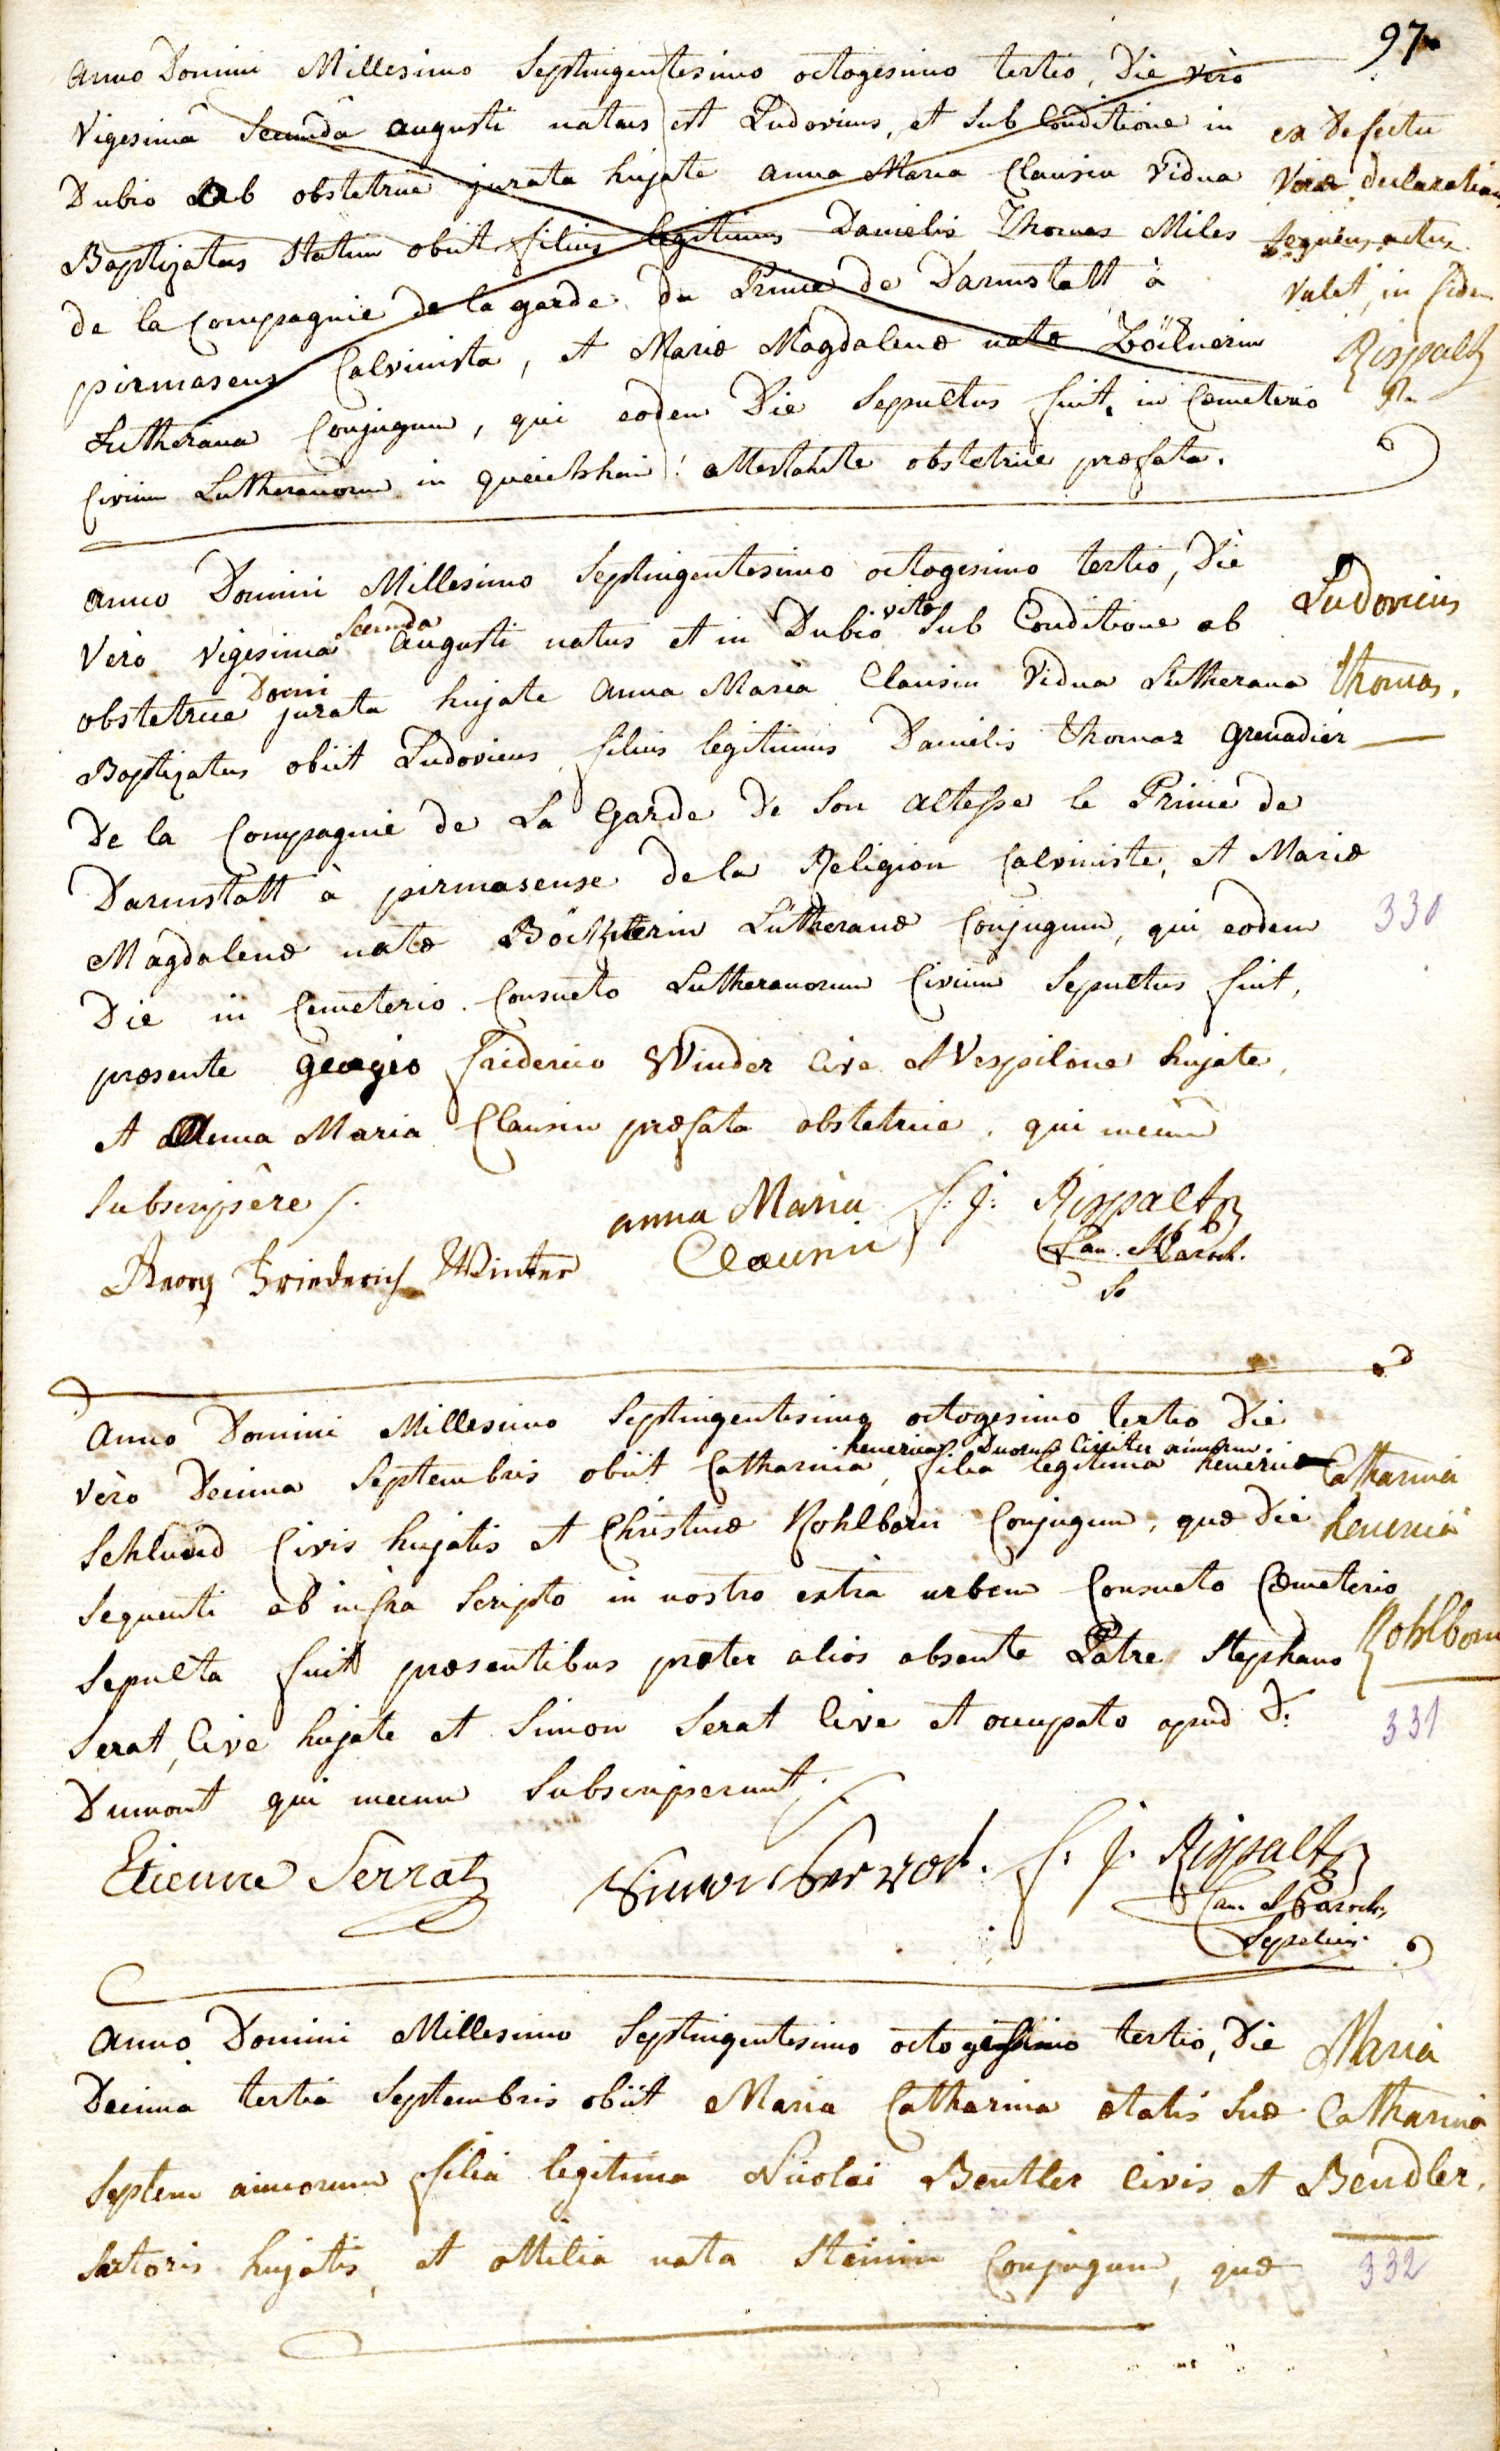 97
Anno Domini Millesimo Septingentesimo octogesimo tertio, Die verò
Vigesimâ Secundâ augusti natus est Ludovicus, et sub Conditione in
Dubio ab obstetrice jurata hujate anna Maria Clausin Vidua
Baptizatus statim obiit filius legitimus Danielis Thomas Miles
de la Compagnie de la garde du Prince de Darmstatt à
pirmasens Calvinista, et Mariæ Magdalenæ natæ
Lutherana Conjugum, qui eodem Die Sepultus fuit, in Cœmeterio
Civium Lutheranorum in queichheim attestante obstetrice præfata.
ex defectu
Veræ declarationis
sequens actus
valet, in fidem
Rippaltz
anno Domini Millesimo Septingentesimo octogesimo tertio, Die
Verò Vigesima Secunda augusti natus et in Dubio vitæ sub Conditione ab
obstetrice Domi jurata hujate anna Maria Clausin Vidua Lutherana
Baptizatus obiit Ludovicus filius legitimus Danielis Thomas Grenadier
De la Compagnie de La Garde De Son altesse le Prince de
Darmstatt à pirmasense de la Religion Calviniste, et Mariæ
Magdalenæ natæ Lutheranæ Conjugum, qui eodem
Die in Cemeterio Consueto Lutheranorum Civium Sepultus fuit,
præsente georgio friderico Winder Cive et Vespilone hujate,
et Anna Maria Clausin præfata obstetrice, qui mecum
Subscripsêre /.
Ludovicus
Thomas.
330
Georg Friederich Winter
anna Maria
Clausin
f: j: Rippaltz
Can. et Paroch.
Anno Domini Millesimo Septingentesimo octogesimo tertio Die
verò Decima Septembris obiit Catharina henerica Duorum Circiter annorum, filia legitima henerici
Schlund Civis hujatis et Christinæ Kohlborn Conjugum, quæ Die
sequenti ab infra Scripto in nostro extra urbem Consueto Cœmeterio
Sepulta fuit præsentibus præter alios absente Patre Stephano
Serat, Cive hujate et Simon Serat Cive et occupato apud D:
Dumont qui mecum Subscripserunt /.
Catharina
henerica
Kohlborn
331
Etienne Serrat
Simon Serrat.
f. j. Rippaltz
Can. et Paroch.
Sepeliens
anno Domini Millesimo Septingentesimo octogesimo tertio, Die
Decima tertia Septembris obiit Maria Catharina ætatis suæ
Septem annorum filia legitima Nicolai Bentler Civis et
Sartoris hujatis, et ottilia nata Steinin Conjugum, quæ
Maria
Catharina
Bendler.
332